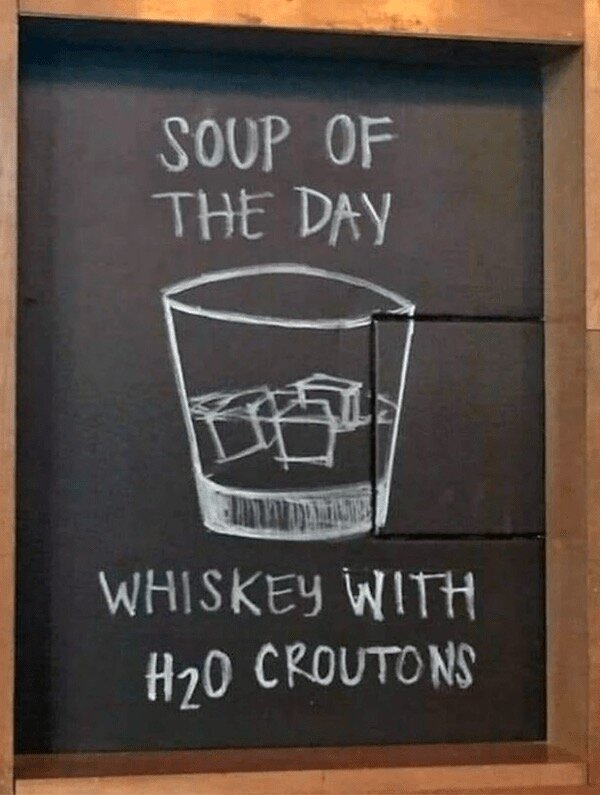 SOUP OF
THE DAY
WHISKEY WITH
H2O CROUTONS